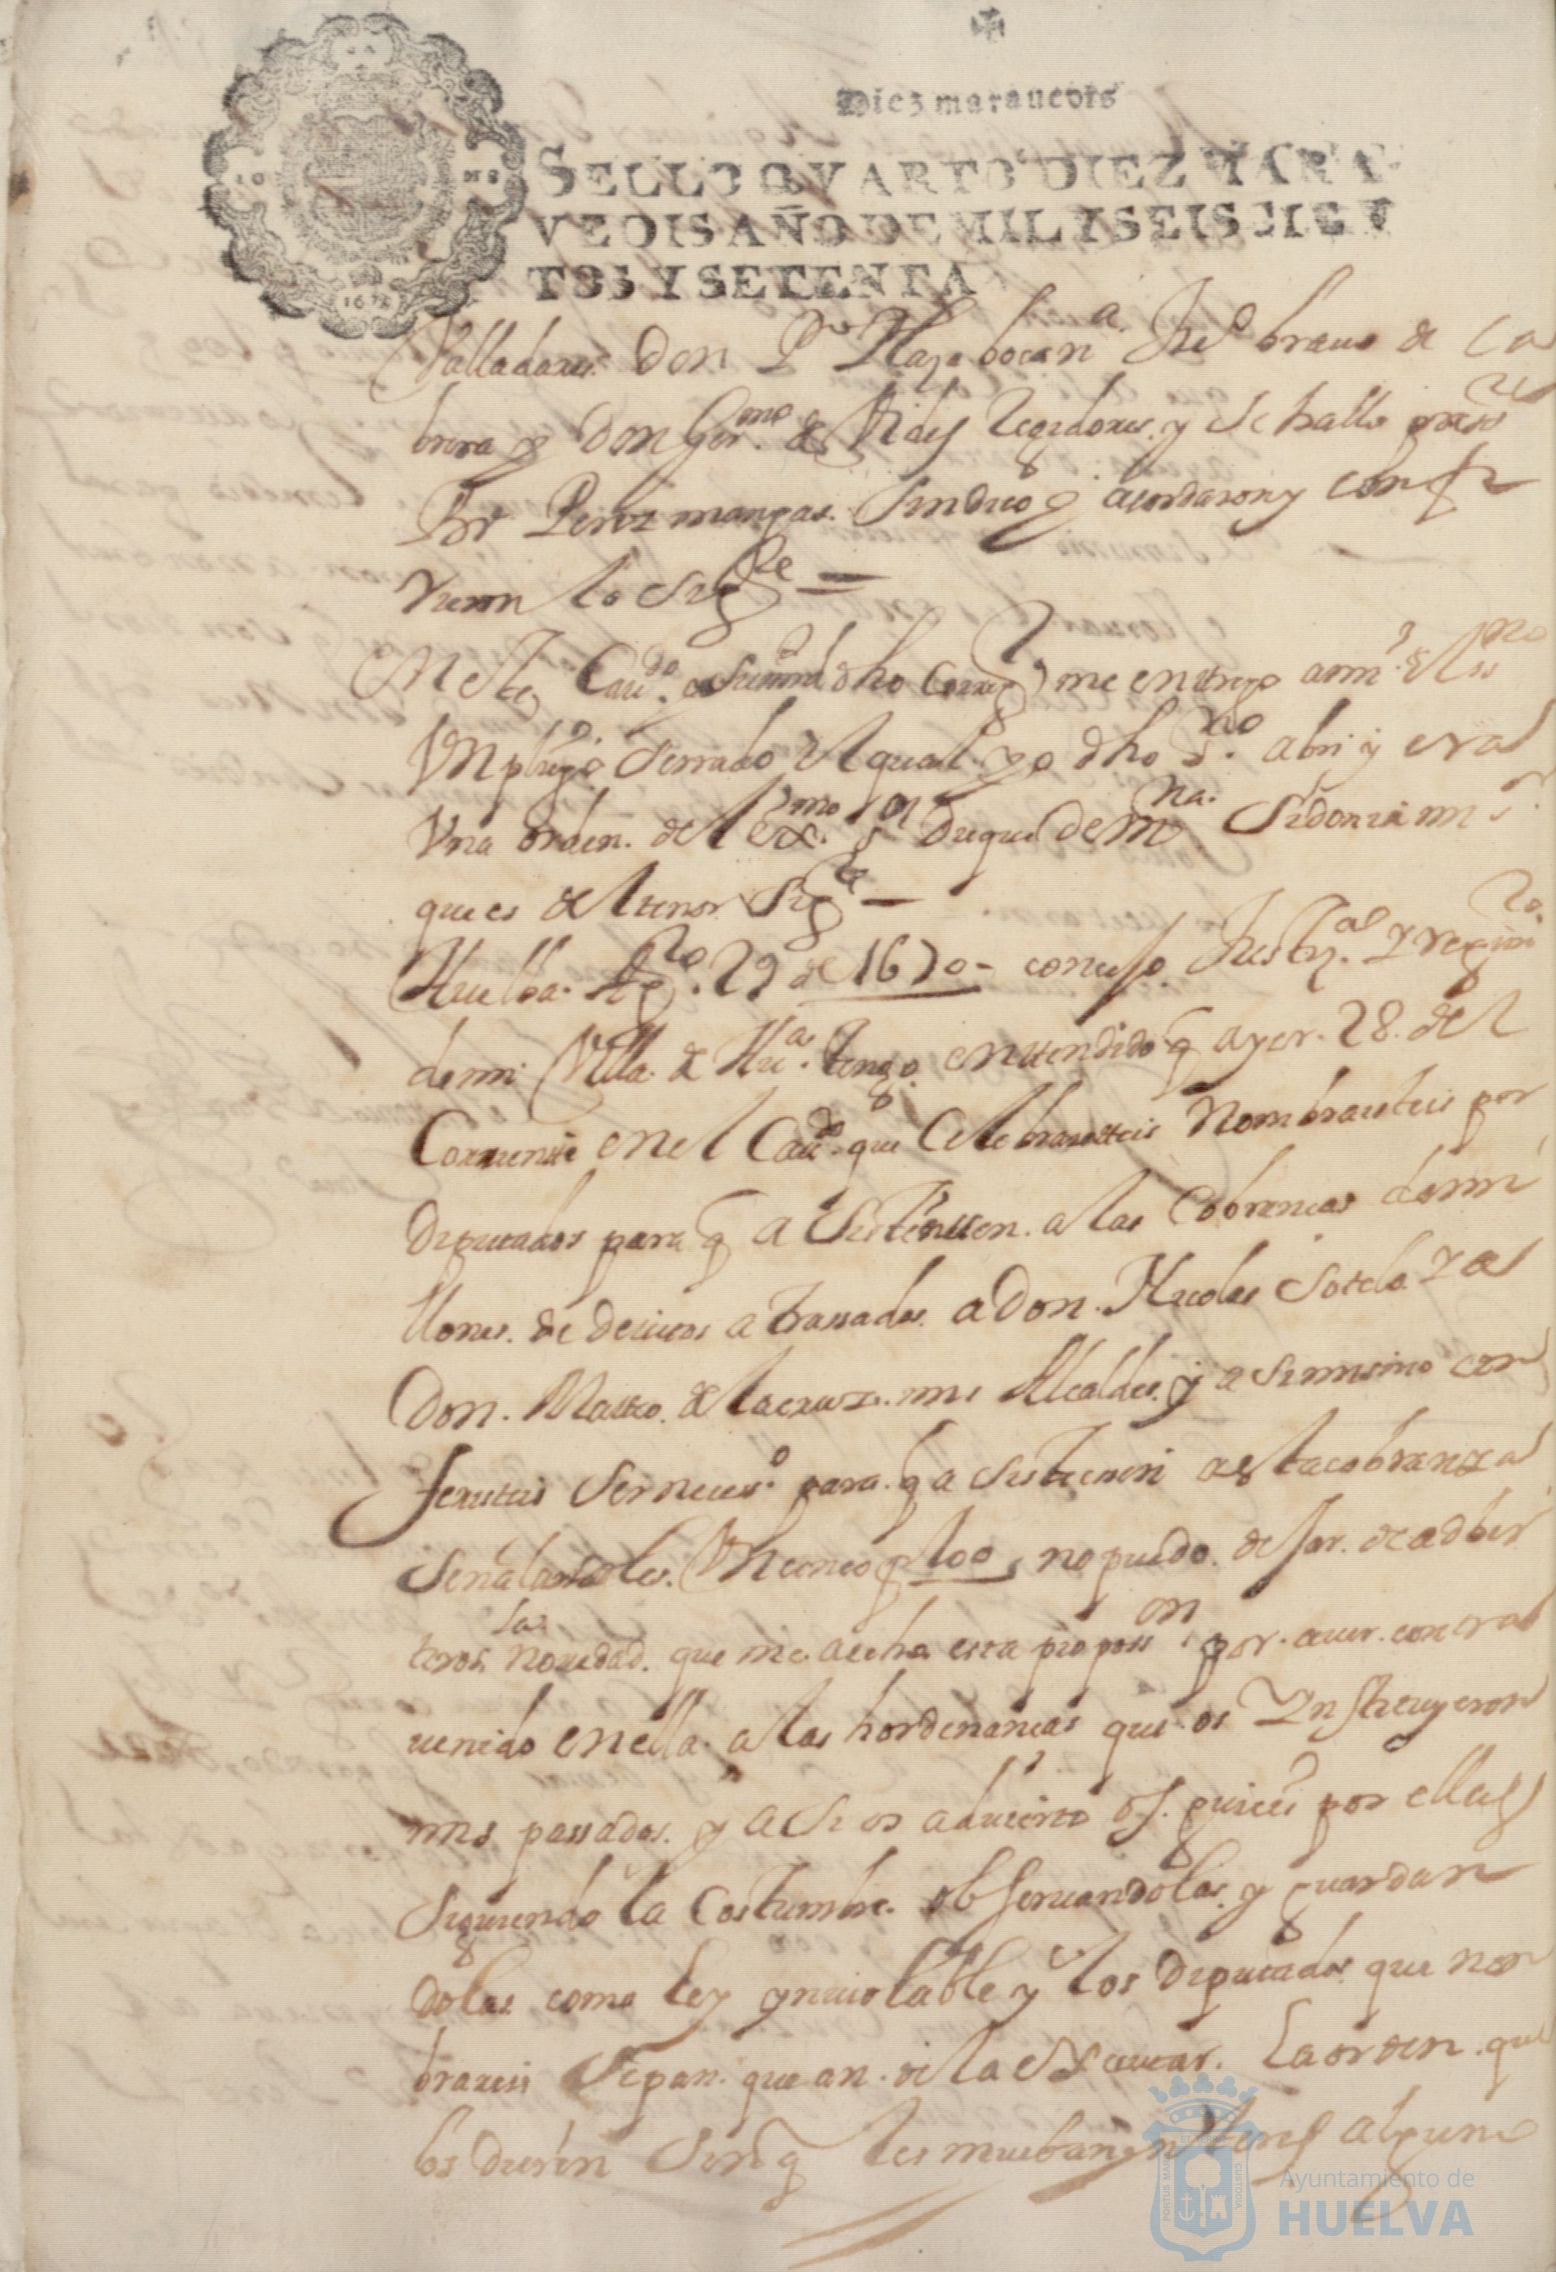 Diez marauedis
SELLO QVARTO DIEZ MARA
VEDIS AÑO DE MIL Y SEISCIEN
TOS Y SETENTA
Valladares Don Po Plaza bocan a Jhe brauo de Ca
brera y Don Germo de Vides regidores y se hallo press te
Perez mangas sindico q acordaron y confi
rieron lo sigte =
En este Caudo su md dho Corregr me entrego a mi el ssno
Vn pliego serrado el qual yo dho sno abri y era
Vna orden del exmo sor Duque de mna Sidonia mi sr
que es del tenor sigte
Huelba Ago 29 de 1670 consejo Justa y regimto
de mi Villa de Hua tengo entendido q ayer 28 del
Corriente en el Caudo que Celebrasteis Nombrasteis por
Diputados para q asistiessen a las Cobransas de mi
llones de devitos atrassados a Don Nicolas Sotelo y a
Don Matteo de la cruz mis Alcaldes y asimismo con
feristeis ser neceso para q asistiesen a esta cobranza
señalarsoles Vn cinco p 100 no puedo dejar de adber
tiros la nouedad que me a echo esta proposson por auer contra
uenido en ella a las hordenansas que os Ynstituyeron
mis passados y asi os aduierto os guieis por ellas
siguiendo la costumbre obseruandolas y guardan
dolas como ley ynuiolable y los Diputados que non
brareis sepan que an de la executar La orden que
los dieren sin q les mueban ynteres alguno
10 MS
1670
PORTUS MARIS CUSTODIA
Ayuntamiento de
HUELVA